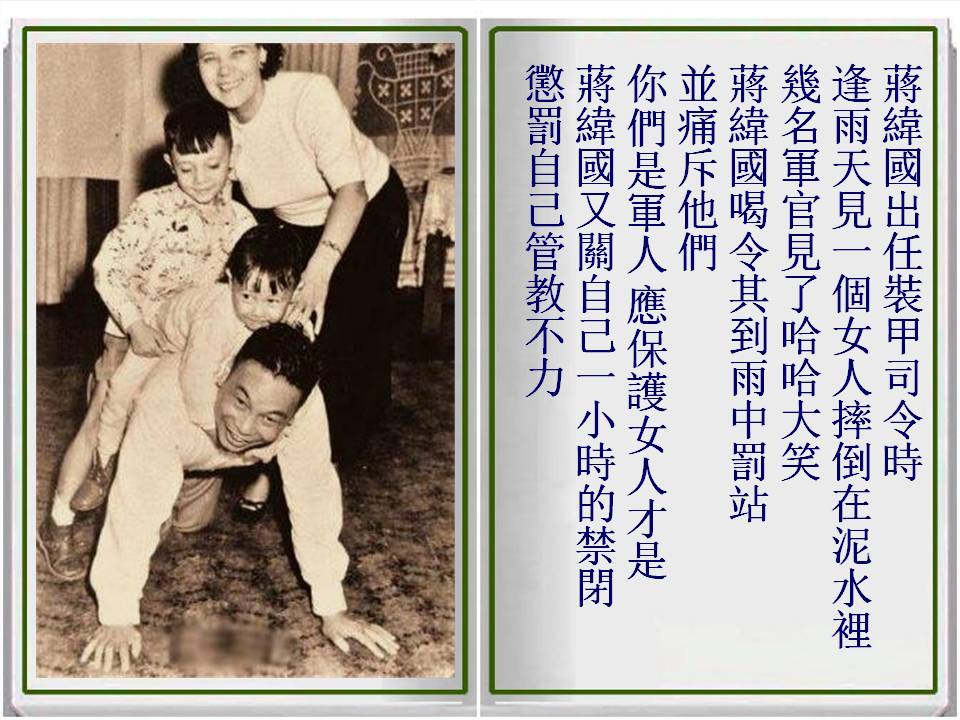 蔣緯國出任裝甲司令時
逢雨天見一個女人摔倒在泥水裡
幾名軍官見了哈哈大笑
蔣緯國喝令其到雨中罰站
並痛斥他們
你們是軍人 應保護女人才是
蔣緯國又關自己一小時的禁閉
懲罰自己管教不力